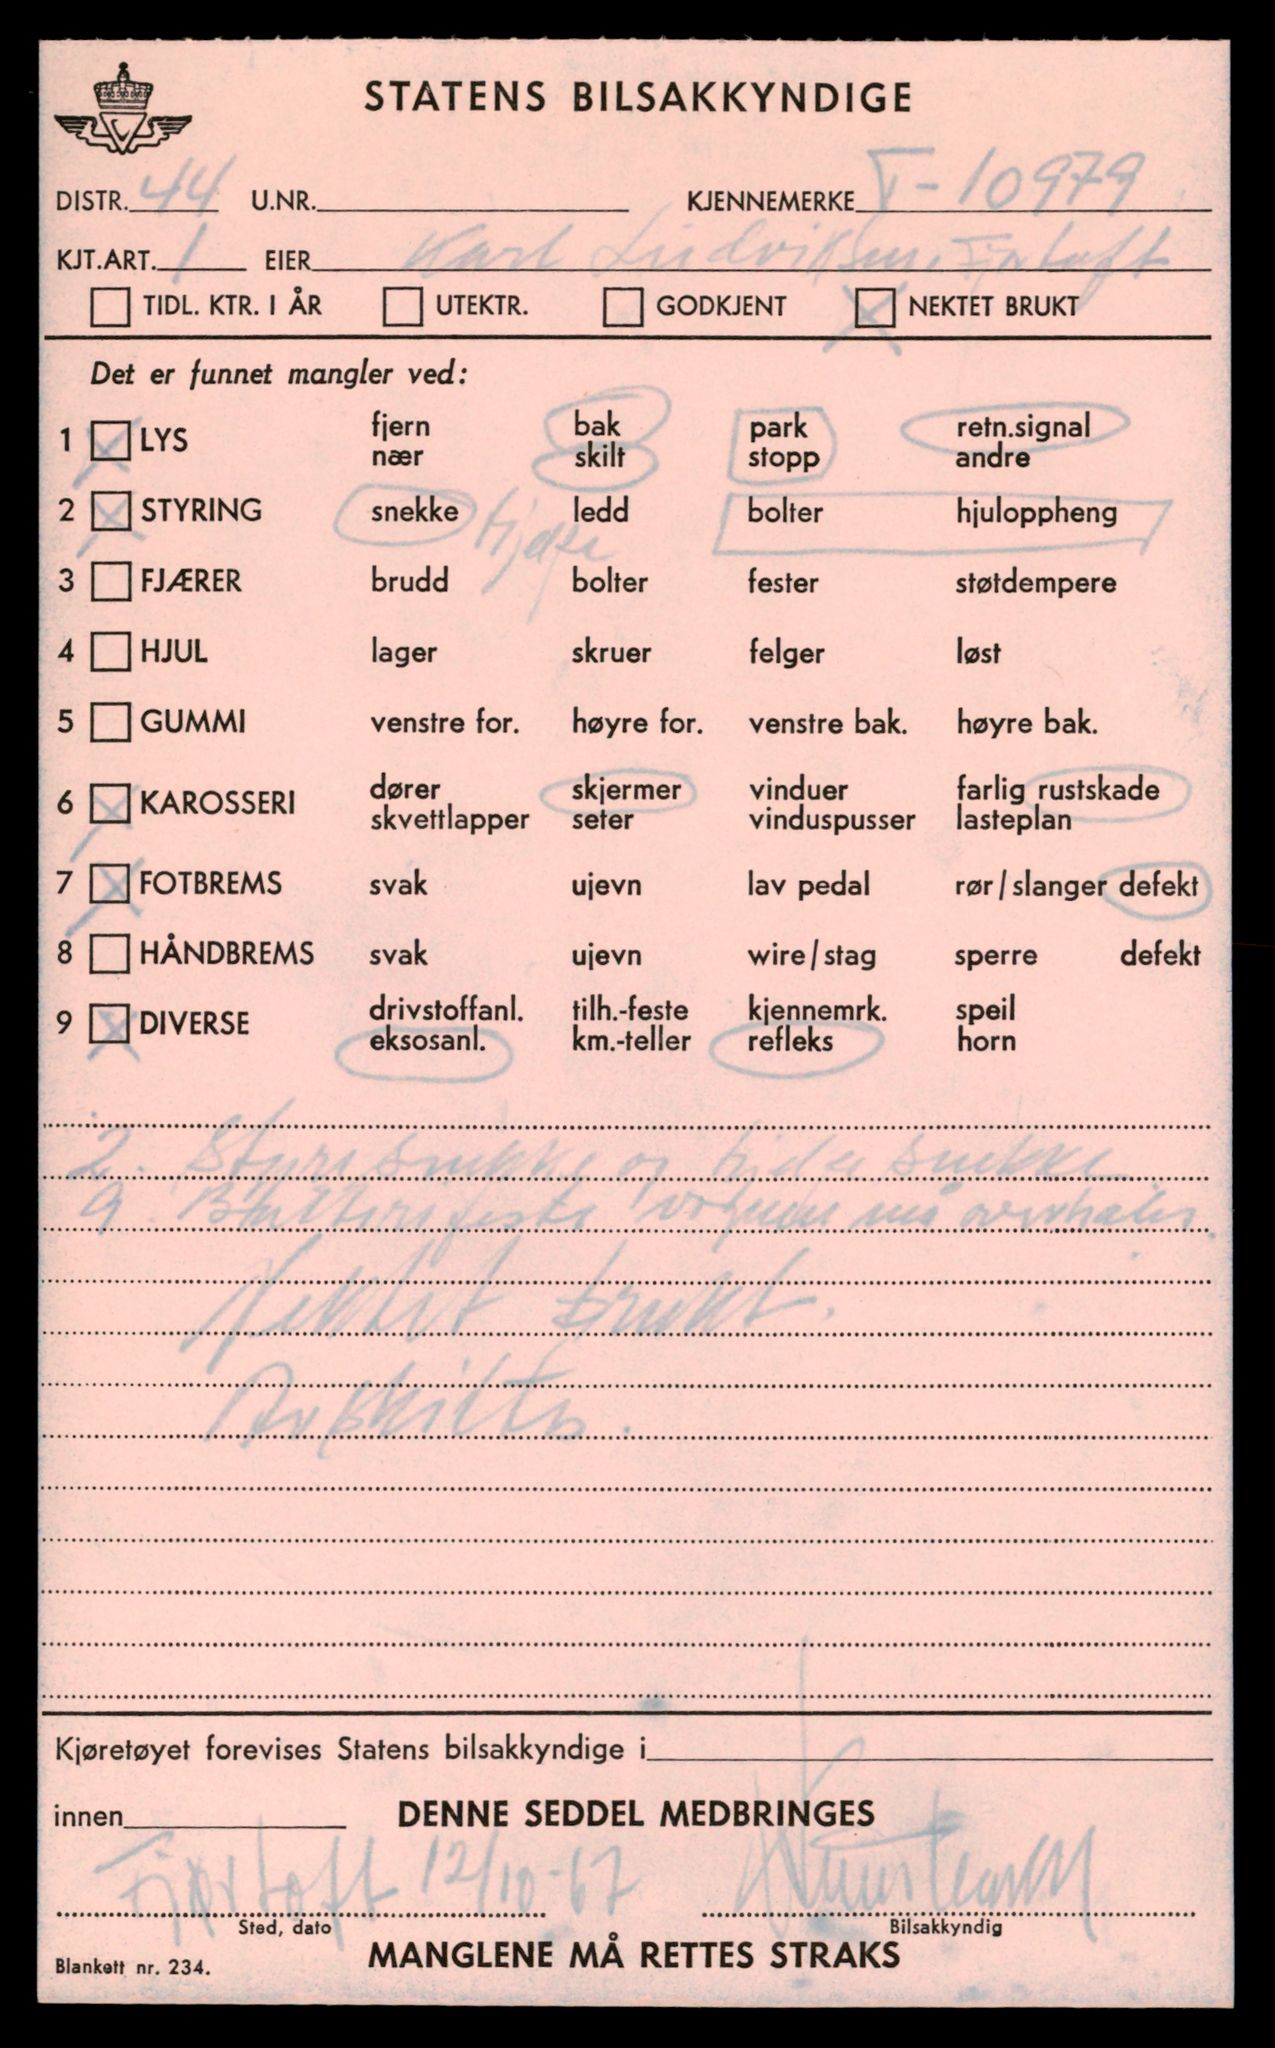 STATENS BILSAKKYNDIGE
DISTR. 44 U.NR. KJENNEMERKE T-10979
KJT.ART. 1 EIER Karl Ludviksen, Fjørtoft
TIDL. KTR. I ÅR UTEKTR. GODKJENT NEKTET BRUKT
Det er funnet mangler ved:
fjern bak park retn.signal
1 LYS
nær skilt stopp andre
2 STYRING snekke ledd bolter hjuloppheng
hjelpe
3 FJÆRER brudd bolter fester støtdempere
4 HJUL lager skruer felger løst
5 GUMMI venstre for. høyre for. venstre bak. høyre bak.
dører skjermer vinduer farlig rustskade
6 KAROSSERI
skvettlapper seter vinduspusser lasteplan
7 FOTBREMS svak ujevn lav pedal rør/slanger defekt
8 HÅNDBREMS svak ujevn wire/stag sperre defekt
drivstoffanl. tilh.-feste kjennemrk. speil
9 DIVERSE
eksosanl. km.-teller refleks horn
2. Styresnekke og hjelpesnekke
9. Batterifeste vognen må overhales.
Nektet brukt.
Avskiltes.
Kjøretøyet forevises Statens bilsakkyndige i
innen DENNE SEDDEL MEDBRINGES
Fjørtoft 12/10-67
Sted, dato Bilsakkyndig
MANGLENE MÅ RETTES STRAKS
Blankett nr. 234.